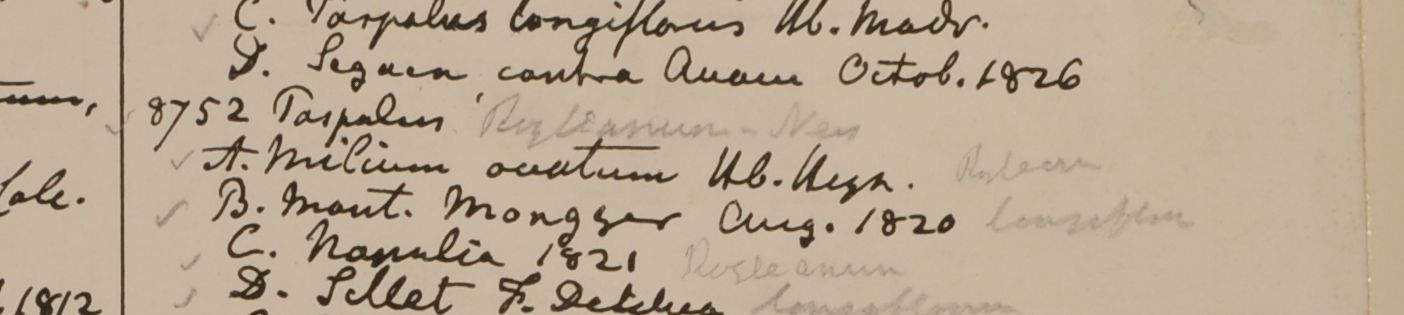 tum,
Calc.
1812
C. Paspalus longiflorus Hb. Madr.
D. Segaen contra Avam Octob. 1826
8752 Paspalus Royleanum - Nees
A. Milium ovatum Hb. Heyn. Roylean
B. Mont. Mongger Aug. 1820 longiflor
C. Napalia 1821 Royleanum
D. Sillet F. De longiflorum